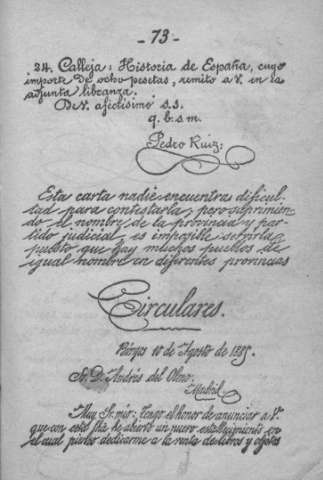 - 73 -
24. Calleja: Historia de España, cuyo
importe de ocho pesetas, remito a V. en la
adjunta libranza.
De V. afectisimo s.s.
q. b. s. m.
Pedro Ruiz
Esta carta nadie encuentra dificul-
tad para contestarla; pero suprimien-
do el nombre de la provincia y par-
tido judicial, es imposible servirla
puesto que hay muchos pueblos de
igual nombre en diferentes provincias
Circulares.
Burgos 10 de Agosto de 1885.
Sr. D. Andrés del Olmo.
Madrid
Muy Sr. mio: Tengo el honor de anunciar a V.
que con esta fha he abierto un nuevo establecimiento en
el cual pienso dedicarme a la venta de libros y objetos